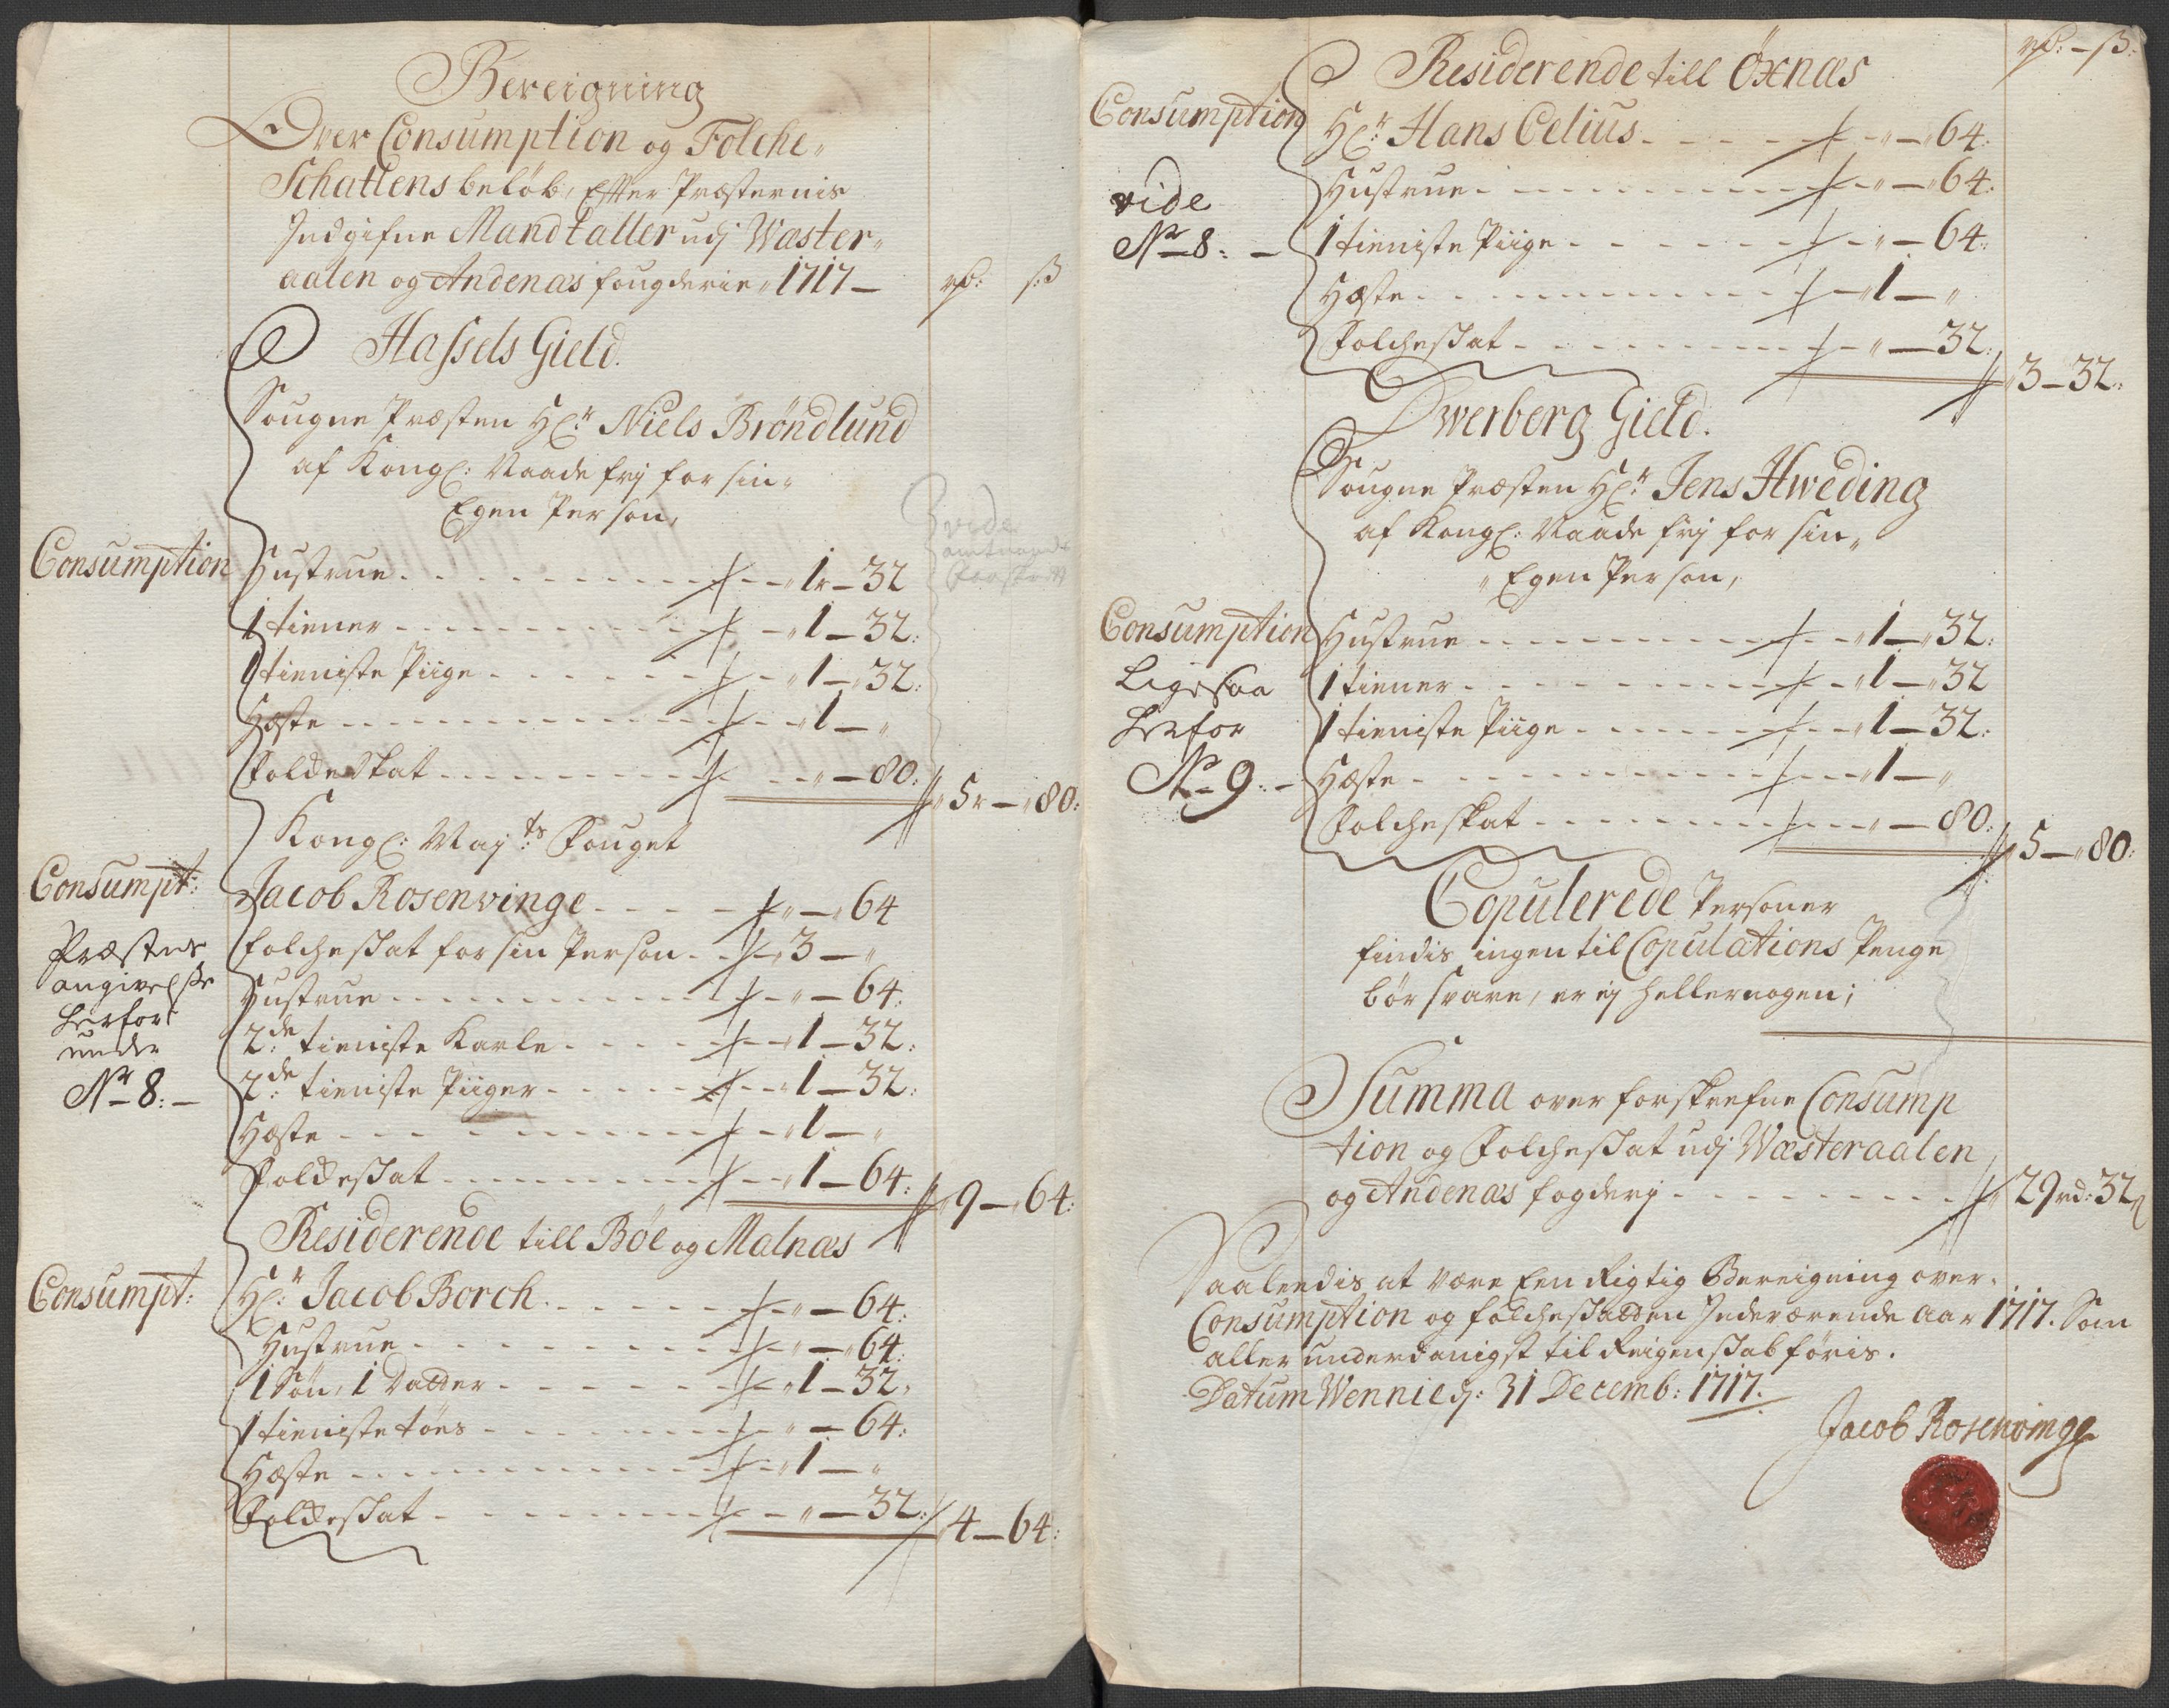 Bereigning
Over Consumption og Folche-
Schattens beløb, Effter Præsternis
Indgifne Mandtaller udj Wæster-
aalen og Andenæs fougderie 1717 — rd: ß
Hassels Gield.
Sougne Præsten Hr: Niels Bröndlund
af Kongl: Naade frj for sin
Egen Person,
vide
Consumption Hustrue - - - 1r - 32
1 tiener - - - 1 - 32:
1 tieniste Piige - - - 1 - 32:
Hæste - - - 1 - "
Folckeskat - - - " - 80: 5r - 80:
Kongl: May:ts Fouget
Consumpt: Jacob Rosenvinge - - - " - 64
Præstens folcheskat for sin Person - - 3 - "
angivelsse Hustrue - - - " - 64:
herfor 2:de tieniste Karle - - - 1 - 32:
under 2:de tieniste Piiger - - - 1 - 32:
No 8: - Hæste - - - 1 - "
Folckeskat - - - 1 - 64: 9 - 64:
Residerende till Böe og Malnæs
Consumpt: Hr: Jacob Borch - - - " - 64:
Hustrue - - - " - 64:
1 Søn, 1 Datter - - - 1 - 32,
1 tieniste tøes - - - " - 64:
Hæste - - - 1 - "
Folckeskat - - - " - 32: 4 - 64:
rd: - ß:
Residerende till Öxnæs
Consumption Hr: Hans Celius - - - " - 64:
Hustrue - - - " - 64:
vide
No 8: - 1 tieniste Piige - - - " - 64:
Hæste - - - 1 - "
Folcheskat - - - " - 32: 3 - 32:
Dwerberg Gield.
Sougne Præsten Hr: Jens Hweding
af Kongl: Naade frj for sin
Egen Person,
Consumption Hustrue - - - 1 - 32:
Ligesaa 1 tiener - - - 1 - 32
herfor 1 tieniste Piige - - - 1 - 32:
No 9: - Hæste - - - 1 - "
Folcheskat - - - " - 80: 5 - 80:
Copulerede Personer
findis ingen til Copulations Penge
bør svare, er ej heller nogen;
Summa over forskrefne Consump
tion og Folcheskat udj Wæsteraalen
og Andenæs fogderj - - - 29rd: 32ß
Saaledis at være Een Rigtig Bereigning over
Consumption og folcheskatten Indeværende Aar 1717. Som
aller underdanigst til Reigenskab føris.
Datum Wennie d: 31 Decemb: 1717.
Jacob Rosenvinge